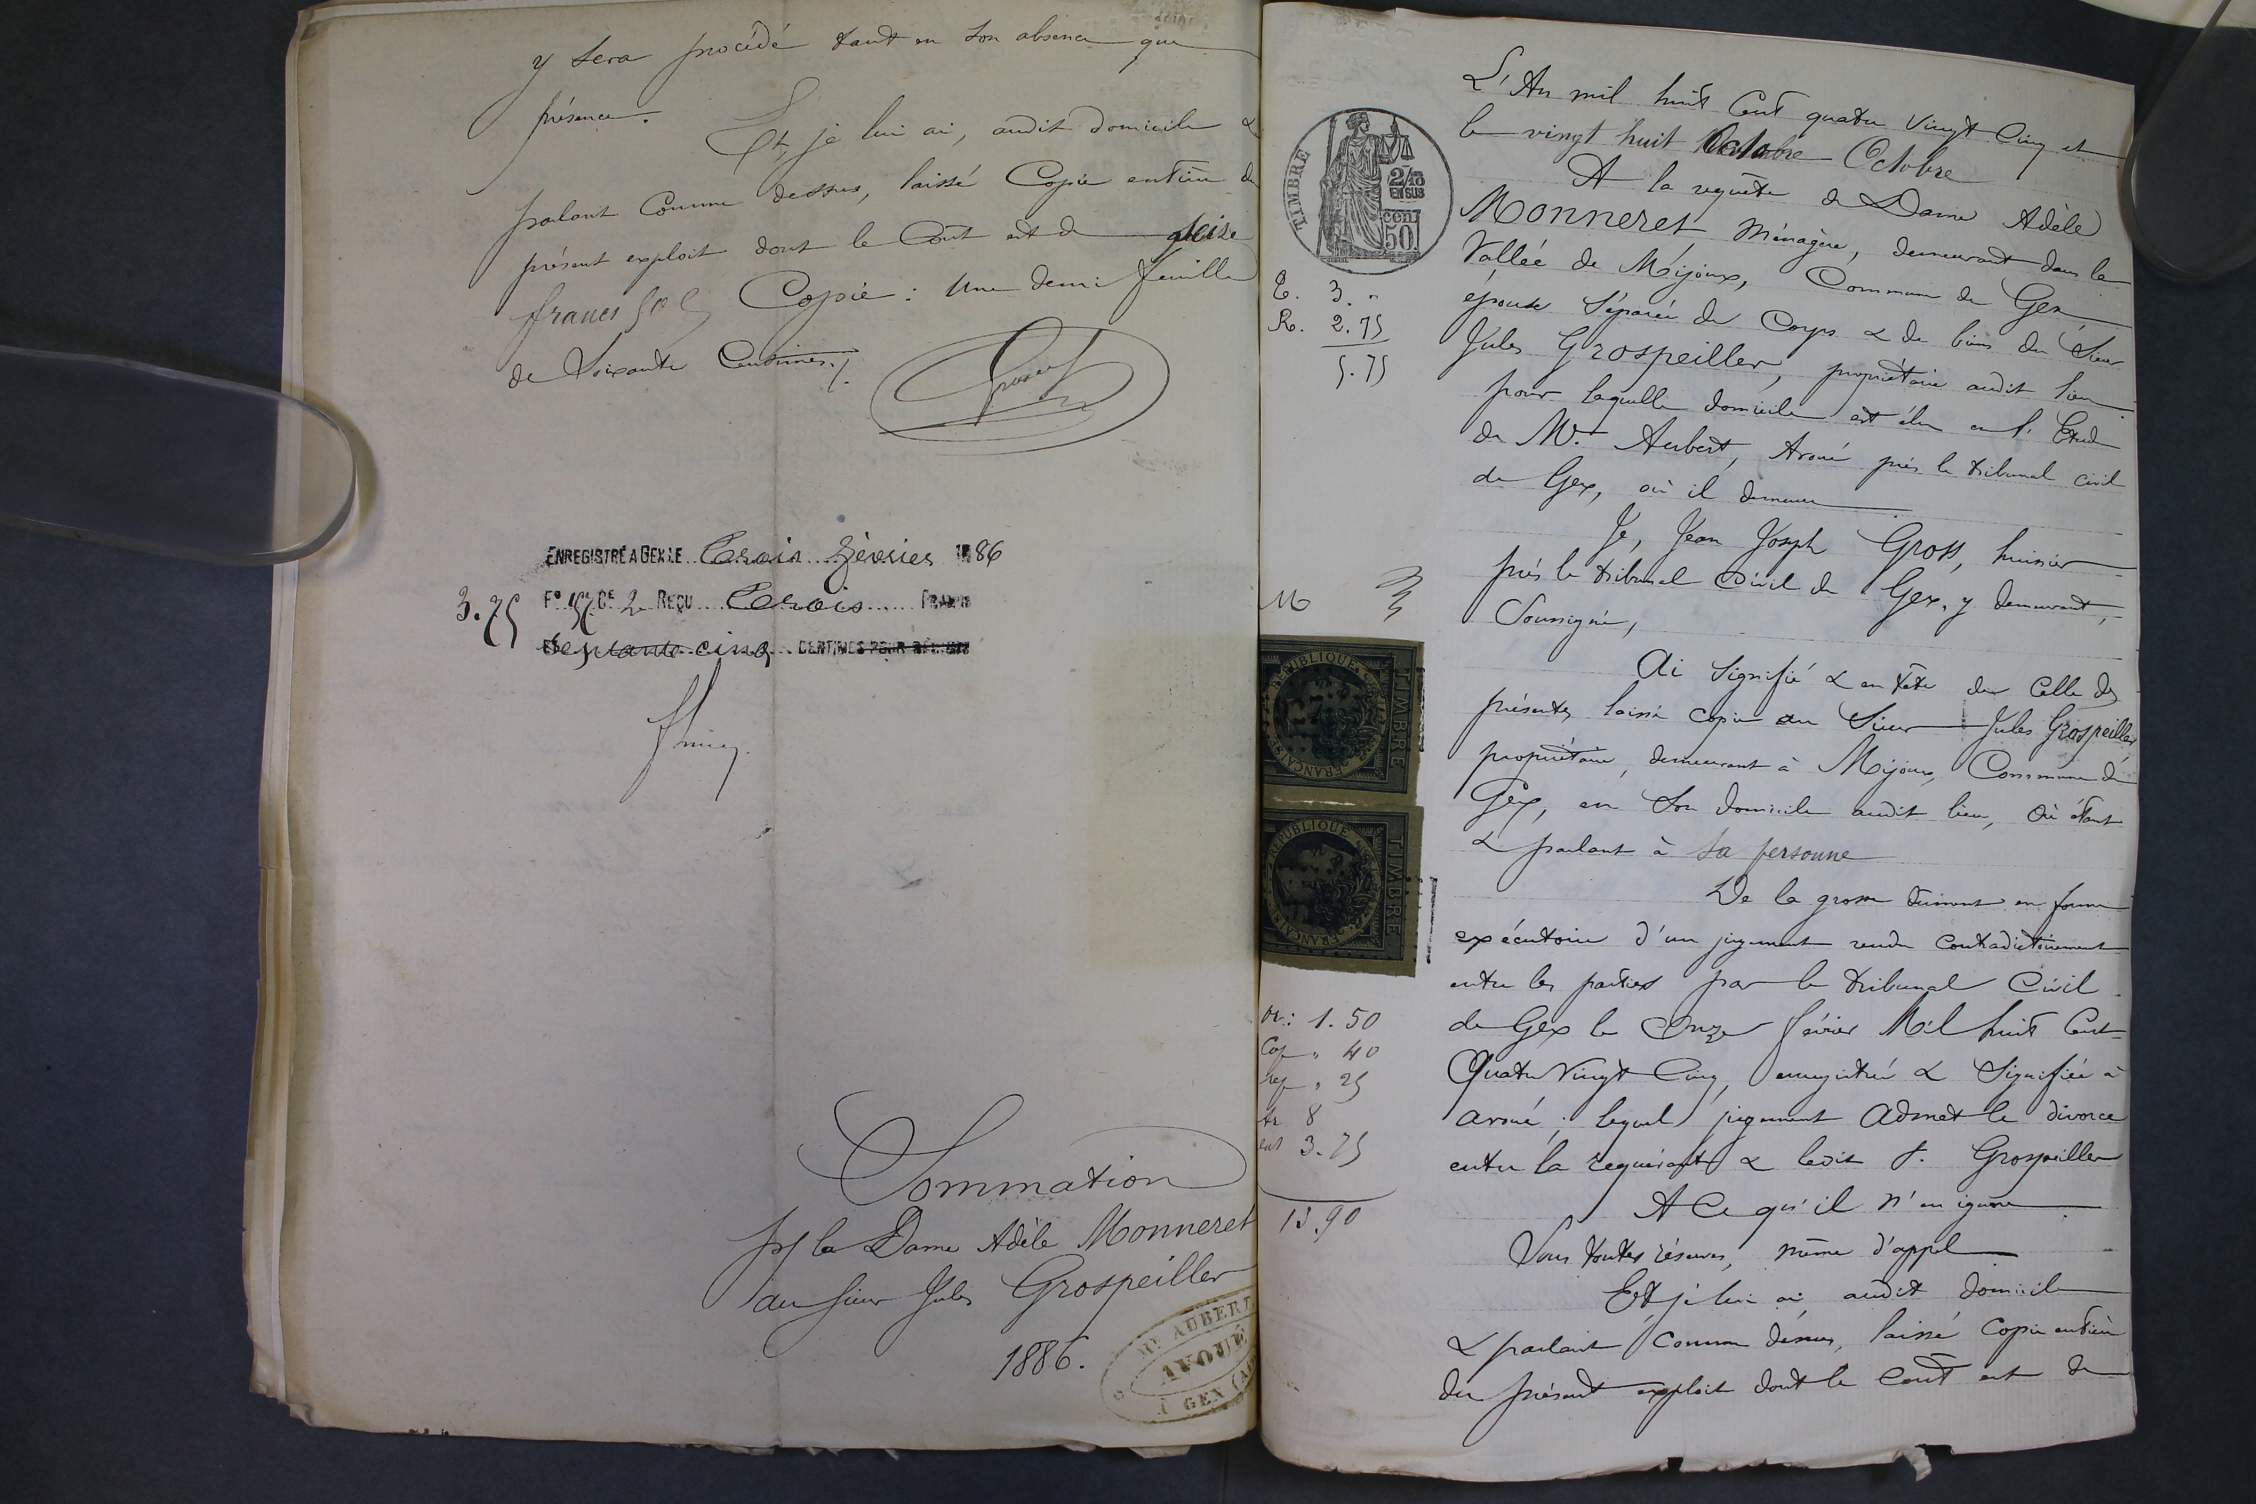 y sera procédé tant en son absence que
présence.
Et, je lui ai, audit domicile &
parlant comme dessus, laissé Copie entière du
présent exploit dont le Coût est de seize
francs 50 c Copie : une demi feuille
de Soixante Centimes./.
ENREGISTRÉ A GEX LE Trois février 1886
3.75 Fo 57 Ce 2 REÇU Trois FRANCS
septante cinq CENTIMES POUR DÉCIMES
Sommation
pr la Dame Adèle Monneret
au sieur Jules Grospeiller
1886.
Me AUBERT
AVOUÉ
A GEX (A
L'An mil huit Cent quatre vingt Cinq et
le vingt huit Octobre
A la requête de Dame Adèle
Monneret ménagère, demeurant dans la
Vallée de Mijoux, Commune de Gex
épouse Séparée de Corps & de biens du Sieur
Jules Grospeiller, propriétaire audit lieu
pour laquelle domicile est élu en l'Etude
de Me. Aubert, Avoué près le tribunal civil
de Gex, où il demeure
Je, Jean Joseph Gross, huissier
près le tribunal Civil de Gex, y demeurant,
Soussigné,
Ai Signifié & en tête de Celle des
présentes laissé copie au Sieur Jules Grospeiller
propriétaire, demeurant à Mijoux, Commune de
Gex, en Son domicile audit lieu, où étant
& parlant à sa personne
De la grosse dûment en forme
exécutoire d'un jugement rendu contradictoirement
entre les parties par le tribunal Civil
de Gex le Onze février Mil huit Cent
Quatre Vingt Cinq, enregistré & Signifié à
avoué ; lequel jugement admet le divorce
entre la requérante & ledit J. Grospeiller
A Ce qu'il n'en ignore
Sous toutes réserves, même d'appel
Et je lui ai, audit domicile
& parlant Comme dessus, laissé Copie entière
du présent exploit dont le Coût est de
TIMBRE
2/10
EN SUS
50 cen
E. 3. "
R. 2.75
5.75
REPUBLIQUE FRANÇAISE
TIMBRE
REPUBLIQUE FRANÇAISE
TIMBRE
or: 1.50
Cop " 40
rep " 25
tr 8
ent 3.75
13.90